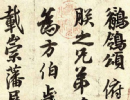 鶺鴒頌俯
朕之兄弟
為方伯歲
載崇藩屏